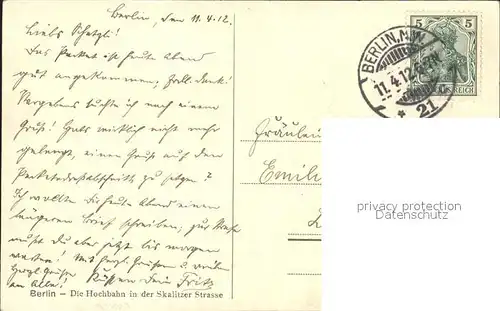 Berlin, den 11.4.12.
Liebs Schatzli!
Das Packet ist heute Abend
gut angekommen, Hrzl. Dank!
Vergebens suchte ich nach einem
Gruß! Hats wirklich nicht mehr
gelangt, einen Gruß auf dem
zu setzen?
Ich wollte Dir heute Abend einen
längeren Brief schreiben; zur Strafe
mußt Du aber jetzt bis morgen
warten! Mit herzl. Grüßen u. vielen
Küssen Dein Fritz
Herzl. Grüße
an Alle!
Berlin – Die Hochbahn in der Skalitzer Strasse
BERLIN. N.W.
11.4.12.
* 21
5 5
REICH
Fräulein
Emili
privacy protection
Datenschutz